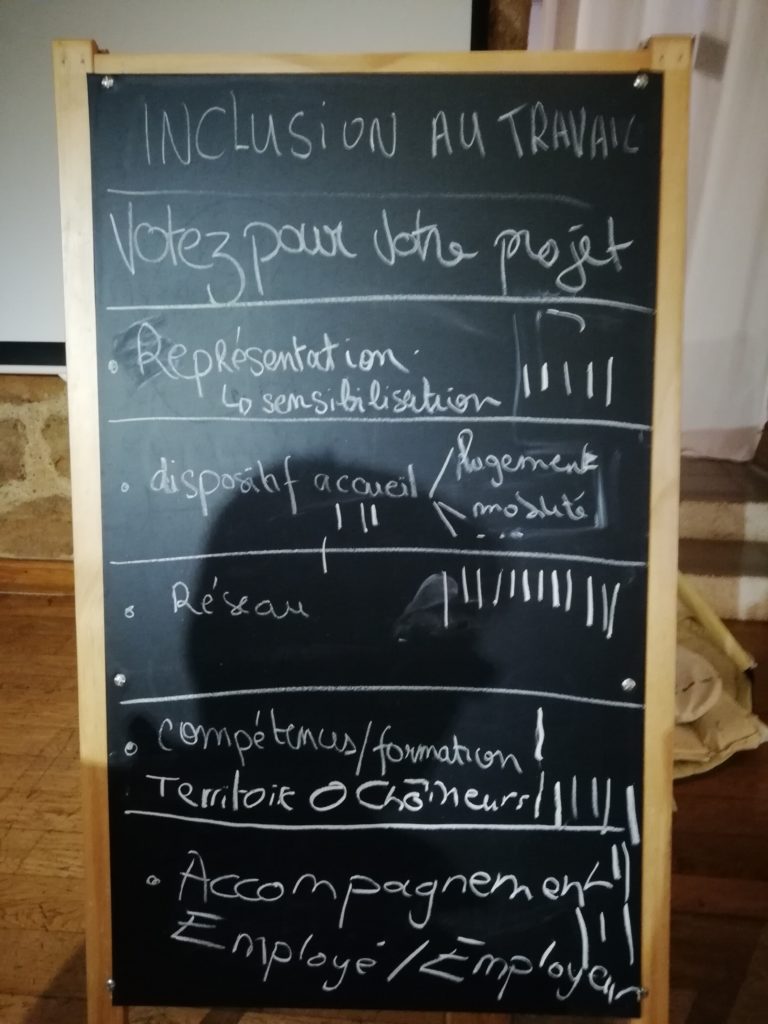 INCLUSION AU TRAVAIL
Votez pour votre projet
• Représentation
↳ sensibilisation
• dispositif accueil / logement
mobilité
...
• Réseau
• compétences/formation
Territoire 0 Chômeurs
• Accompagnement
Employé/Employeur